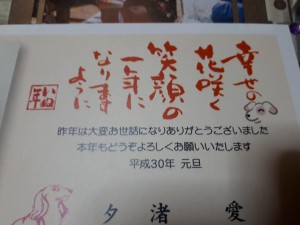 幸せの
花咲く
笑顔の
一年に
なります
ように
いぬ年
昨年は大変お世話になりありがとうございました
本年もどうぞよろしくお願いいたします
平成30年 元旦
夕 渚 愛